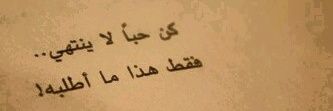 كن حباً لا ينتهي..
فقط هذا ما أطلبه!